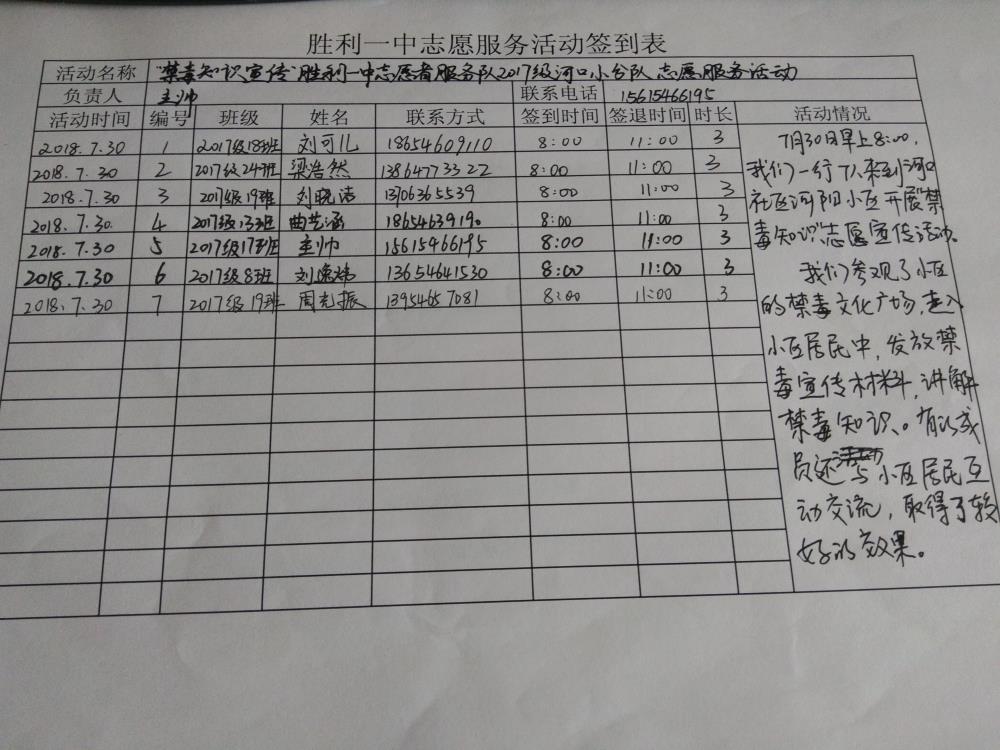 胜利一中志愿服务活动签到表
活动名称 "禁毒知识宣传"胜利一中志愿者服务队2017级河口小分队志愿服务活动
负责人 王帅 联系电话 15615466195
活动时间 编号 班级 姓名 联系方式 签到时间 签退时间 时长 活动情况
2018.7.30 1 2017级18班 刘可儿 18654609110 8:00 11:00 3
2018.7.30 2 2017级24班 梁浩然 13864773322 8:00 11:00 3
2018.7.30 3 2017级19班 刘晓洁 13706365539 8:00 11:00 3
2018.7.30. 4 2017级33班 曲艺涵 1865463919. 8:00 11:00 3
2018.7.30 5 2017级17班 王帅 15615466195 8:00 11:00 3
2018.7.30 6 2017级8班 刘逸祎 13654641530 8:00 11:00 3
2018.7.30 7 2017级19班 周光振 13954657081 8:00 11:00 3
7月30日早上8:00,
我们一行7人来到河口
社区河阳小区开展"禁
毒知识"志愿宣传活动。
我们参观了小区
的禁毒文化广场,走入
小区居民中,发放禁
毒宣传材料,讲解
禁毒知识。有的成
员还与小区居民互
动交流,取得了较
好的效果。